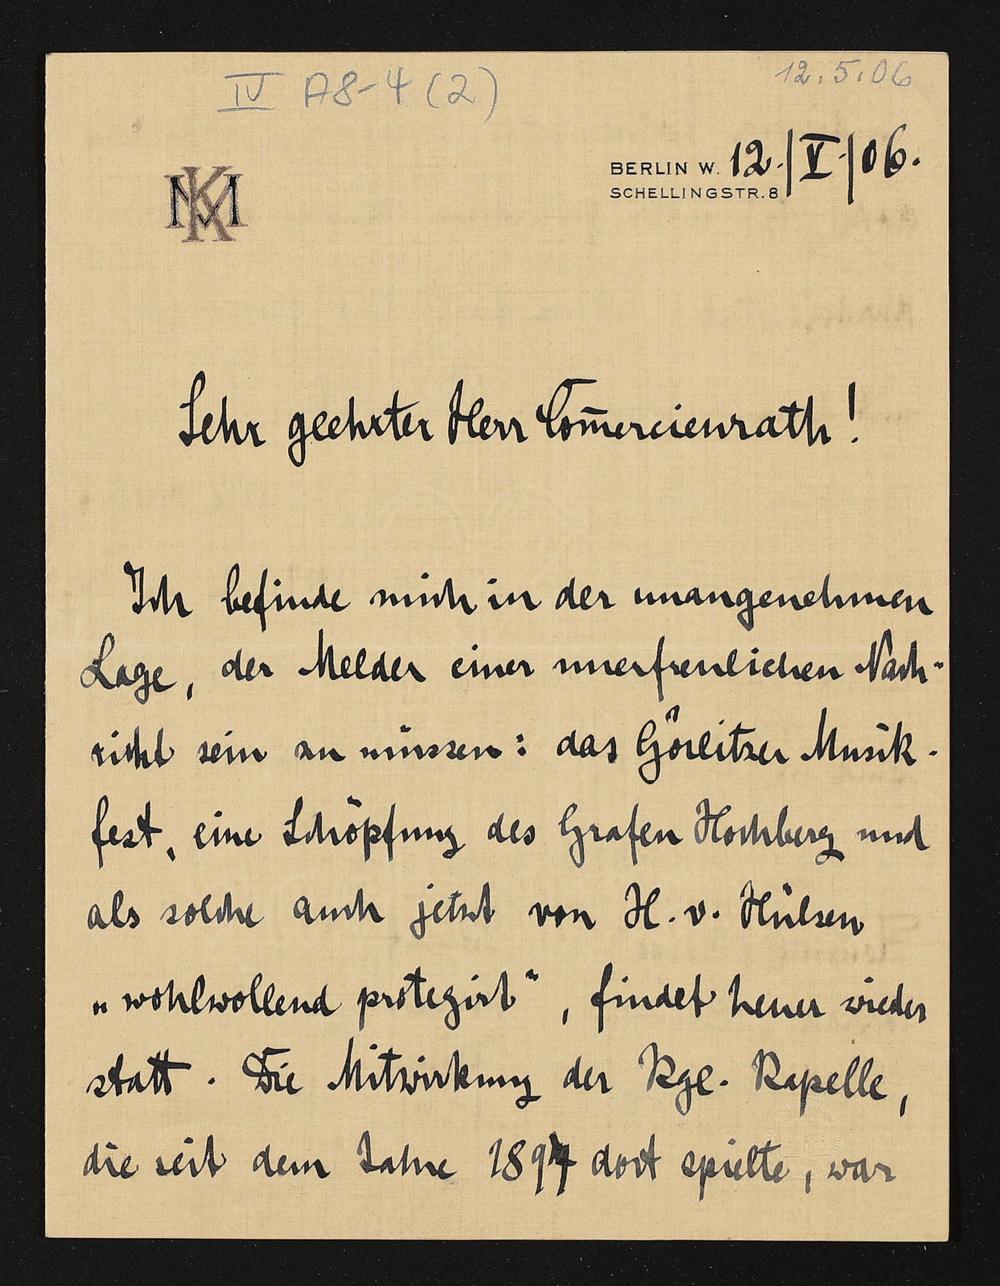 IV A8-4 (2)
12.5.06
KM
BERLIN W. 12./V./06.
SCHELLINGSTR. 8
Sehr geehrter Herr Com̅ercienrath!
Ich befinde mich in der unangenehmen
Lage, der Melder einer unerfreulichen Nach-
richt sein zu müssen: das Görlitzer Musik-
fest, eine Schöpfung des Grafen Hochberg und
als solche auch jetzt von H. v. Hülsen
„wohlwollend protegirt“, findet heuer wieder
statt. Die Mitwirkung der Kgl. Kapelle,
die seit dem Jahre 1894 dort spielte, war